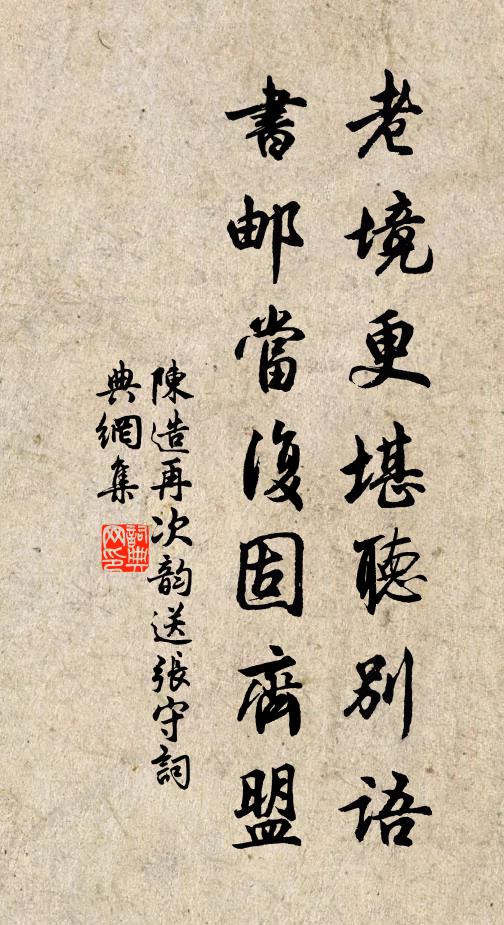 老境更堪聽別語
書邮當復固齊盟
陳造再次韵送張守詞
典網集
詞典网印